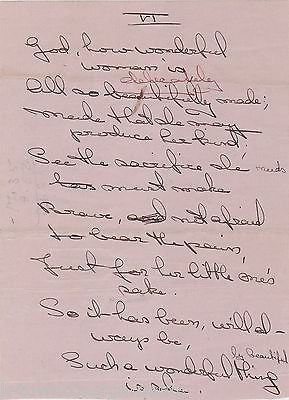 VI
God, how wonderful
woman is
delicately
All so beautifully made;
made that she may
produce her kind;
See the sacrifice she needs
has must make
Brave, and not afraid
to bear the pain,
Just for her little one's
sake.
So it has been, will al-
ways be,
Such a wonderful thing
by beautiful
is